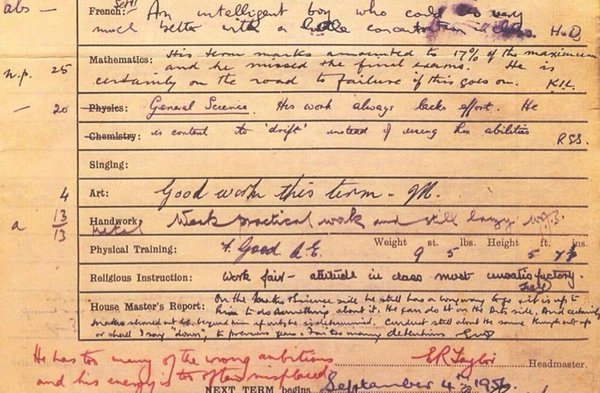 abs — French: An intelligent boy who could be very
much better with a little concentration in class. H
Mathematics: His term marks amounted to 17% of the maximum
n.p. 25 and he missed the final exams. He is
certainly on the road to failure if this goes on.
— 20 Physics: General Science. His work always lacks effort. He
Chemistry: is content to 'drift' instead of using his abilities
RSS.
Singing:
4 Art: Good work this term -
a 13/13 Handwork: Metal Weak practical work and still lazy
Physical Training: F. Good Weight 9 st. 5 lbs. Height 5 ft. 7½ ins.
Religious Instruction: Work fair - attitude in class most unsatisfactory.
House Master's Report: On the Science side he still has a long way to go & it is up to
him to do something about it. He can do it on the Arts side, and certainly
marks should not be beyond him if only he is determined. Conduct still about the same
or shall I say "down", to previous years. Far too many detentions
He has too many of the wrong ambitions E.R. Taylor Headmaster.
and his energy is too often misplaced
NEXT TERM begins September 4th 1956